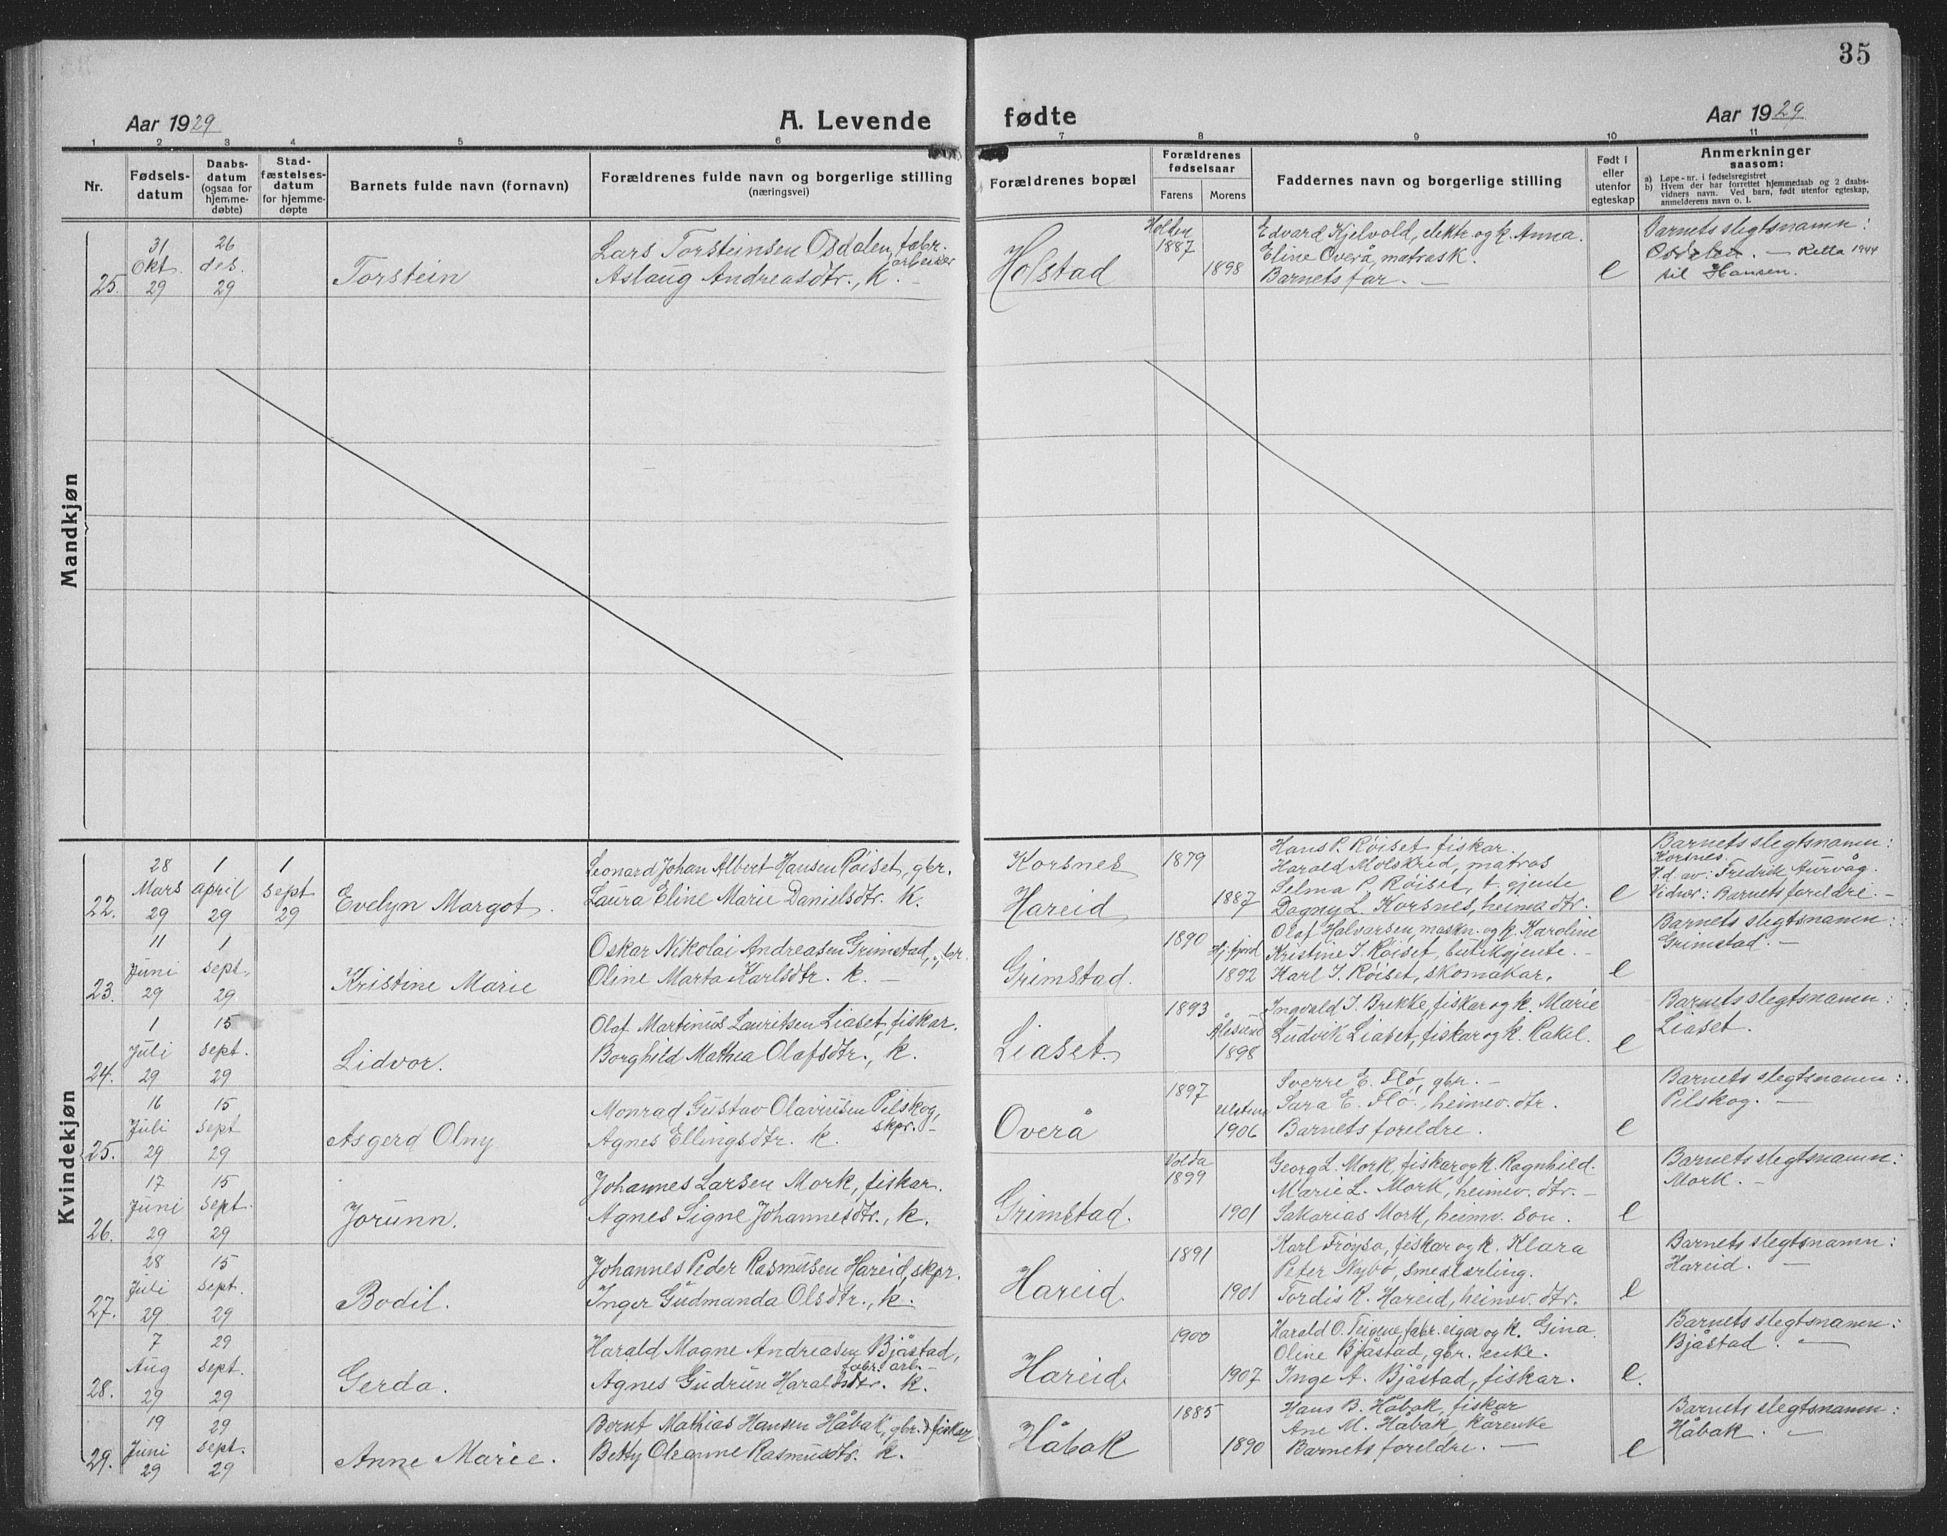 35
Aar 1929 A. Levende fødte Aar 1929
1 2 3 4 5 6 7 8 9 10 11
Nr.
Fødsels-
datum
Daabs-
datum
(ogsaa for
hjemme-
døbte)
Stad-
fæstelses-
datum
for hjemme-
døpte
Barnets fulde navn (fornavn)
Forældrenes fulde navn og borgerlige stilling
(næringsvei)
Forældrenes bopæl
Forældrenes
fødselsaar
Farens Morens
Faddernes navn og borgerlige stilling
Født i
eller
utenfor
egteskap
Anmerkninger
saasom:
a) Løpe-nr. i fødselsregistret
b) Hvem der har forrettet hjemmedaab og 2 daabs-
vidners navn. Ved barn, født utenfor egteskap,
anmelderens navn o. l.
Mandkjøn
25.
31
Okt.
29
26
des.
29
Torstein
Lars Torsteinsen Osdalen, fabr.
arbeider
Aslaug Andreasdtr., k. –
Holstad
Holden
1887
1898
Edvard Kjelvold, elektr. og k. Anna.
Eline Overå, matrosk.
Barnets far. –
e
Barnets slegtsnamn:
Osdalen. – Retta 1944
til Hansen.
Kvindekjøn
22.
28
Mars
29
1
april
29
1
sept
29
Evelyn Margot.
Leonard Johan Albert Hansen Røiset, gbr.
Laura Eline Marie Danielsdtr. k.
Korsnes
Hareid
1879
1887
Hans P. Røiset, fiskar.
Harald Molskred, matros
Selma P. Røiset, t. gjente
Dagny L. Korsnes, heimv. dtr.
e
Barnets slegtsnamn:
Korsnes.
H.d. av: Fredrik Aurvåg.
Vidner: Barnets foreldre. –
23.
11
Juni
29
1
sept.
29
Kristine Marie
Oskar Nikolai Andreasen Grimstad, gbr.
Oline Marta Karlsdtr. k. –
Grimstad.
1890
1892
Olaf Halvarsen, maskn. og k. Karoline
Kristine J. Røiset, butikgjente. –
Karl J. Røiset, skomakar.
e
Barnets slegtsnamn:
Grimstad. –
24.
1
Juli
29
15
sept.
29
Lidvor.
Olaf Martinus Lauritsen Liaset, fiskar.
Borghild Mathea Olafsdtr., k.
Liaset.
1893
Ålesund
1898
Ingvald J. Brekke, fiskar og k. Marie
Ludvik Liaset, fiskar og k. Rakel.
e
Barnets slegtsnamn:
Liaset.
25.
16
Juli
29
15
sept
29
Asgerd Olny
Monrad Gustav Olavinsen Pilskog,
skpr. –
Agnes Ellingsdtr. k.
Overå
1897
Ulstein
1906
Sverre E. Flø, gbr. –
Sara E. Flø, heimev. dtr.
Barnets foreldre.
e
Barnets slegtsnamn:
Pilskog. –
26.
17
Juni
29
15
sept.
29
Jorunn.
Johannes Larsen Mork, fiskar.
Agnes Signe Johannesdtr., k.
Grimstad.
Volda
1899
1901
Georg L. Mork, fiskar og k. Ragnhild.
Marie L. Mork, heimev. dtr. –
Sakarias Mork, heimv. son.
e
Barnets slegtsnamn:
Mork. –
27.
28
Juli
29
15
sept.
29
Bodil.
Johannes Peder Rasmusen Hareid, skpr.
Inger Gudmanda Olsdtr., k.
Hareid
1891
1901
Karl Frøysa, fiskar og k. Klara
Peter Nybø, smedlærling.
Tordis R. Hareid, heimev. dtr.
e
Barnets slegtsnamn:
Hareid. –
28.
7
Aug
29
29
sept.
29
Gerda.
Harald Magne Andreasen Bjåstad,
fabr. arb. –
Agnes Gudrun Haraldsdtr. k.
Hareid
1900
1907
Harald O. Teigene, fabr. eigar og k. Gina.
Oline Bjåstad, gbr. enke.
Inge A. Bjåstad, fiskar.
e.
Barnets slegtsnamn:
Bjåstad. –
29.
19
Juni
29
29
sept.
29
Anne Marie.
Bernt Mathias Hansen Håbak, gbr. & fiskar
Betty Oleanne Rasmusdtr. k.
Håbak
1885
1890
Hans B. Håbak, fiskar
Ane M. Håbak, kårenke
Barnets foreldre. –
e
Barnets slegtsnamn:
Håbak. –